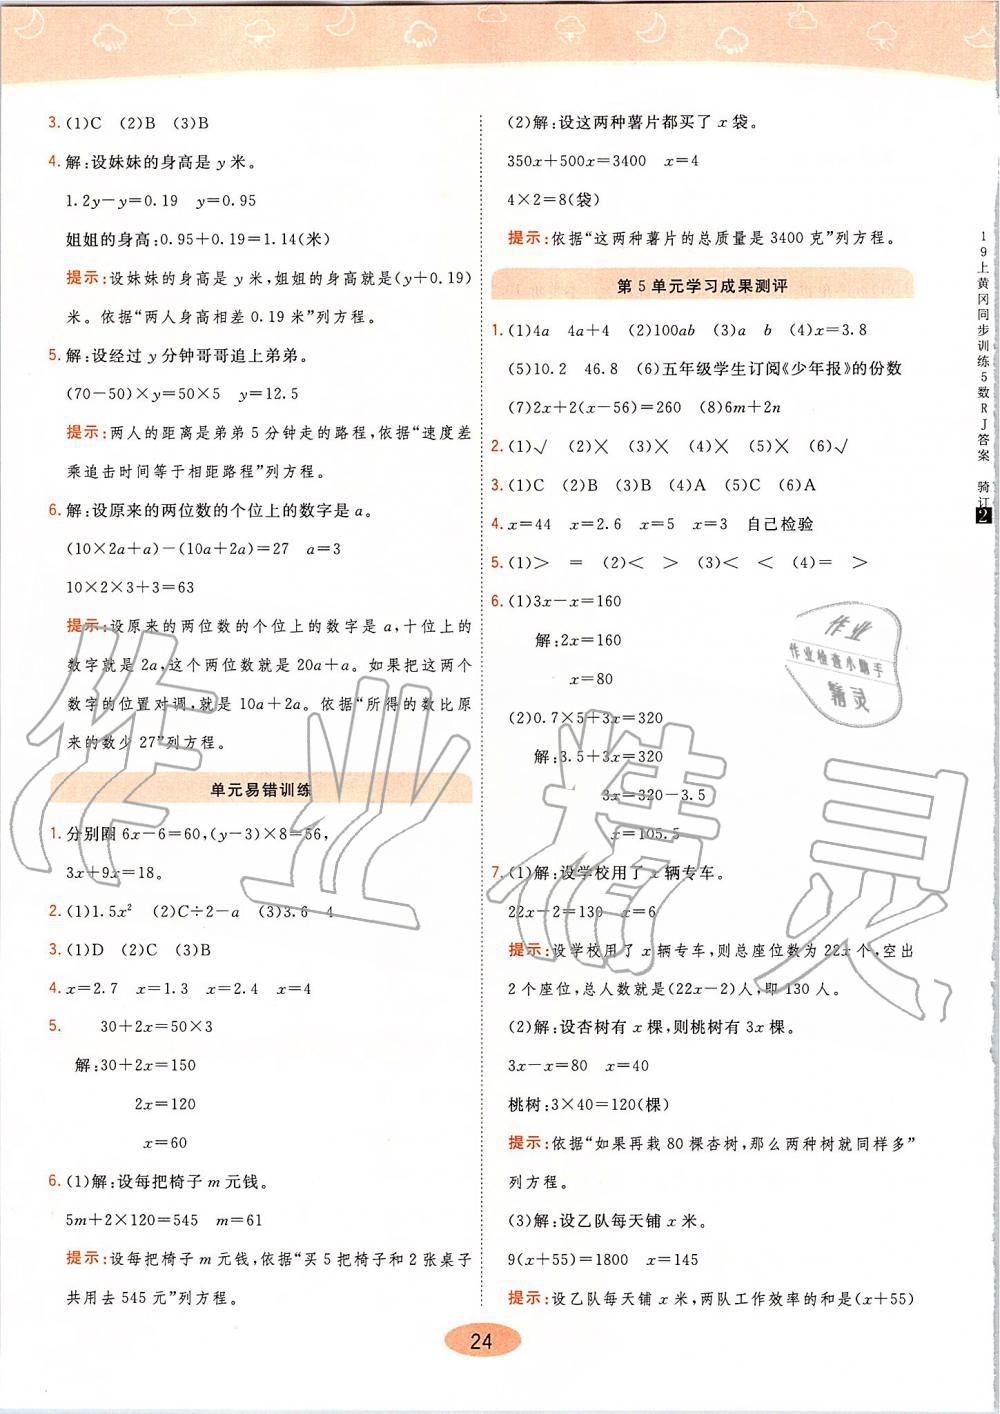 3. (1)C (2)B (3)B
4. 解:设妹妹的身高是 y 米。
1.2y−y=0.19 y=0.95
姐姐的身高:0.95+0.19=1.14(米)
提示:设妹妹的身高是 y 米,姐姐的身高就是(y+0.19)
米。依据“两人身高相差 0.19 米”列方程。
5. 解:设经过 y 分钟哥哥追上弟弟。
(70−50)×y=50×5 y=12.5
提示:两人的距离是弟弟 5 分钟走的路程,依据“速度差
乘追击时间等于相距路程”列方程。
6. 解:设原来的两位数的个位上的数字是 a。
(10×2a+a)−(10a+2a)=27 a=3
10×2×3+3=63
提示:设原来的两位数的个位上的数字是 a,十位上的
数字就是 2a,这个两位数就是 20a+a。如果把这两个
数字的位置对调,就是 10a+2a。依据“所得的数比原
来的数少 27”列方程。
单元易错训练
1. 分别圈 6x−6=60,(y−3)×8=56,
3x+9x=18。
2. (1)1.5x² (2)C÷2−a (3)3.6 4
3. (1)D (2)C (3)B
4. x=2.7 x=1.3 x=2.4 x=4
5. 30+2x=50×3
解:30+2x=150
2x=120
x=60
6. (1)解:设每把椅子 m 元钱。
5m+2×120=545 m=61
提示:设每把椅子 m 元钱,依据“买 5 把椅子和 2 张桌子
共用去 545 元”列方程。
(2)解:设这两种薯片都买了 x 袋。
350x+500x=3400 x=4
4×2=8(袋)
提示:依据“这两种薯片的总质量是 3400 克”列方程。
第 5 单元学习成果测评
1. (1)4a 4a+4 (2)100ab (3)a b (4)x=3.8
(5)10.2 46.8 (6)五年级学生订阅《少年报》的份数
(7)2x+2(x−56)=260 (8)6m+2n
2. (1)√ (2)× (3)× (4)× (5)× (6)√
3. (1)C (2)B (3)B (4)A (5)C (6)A
4. x=44 x=2.6 x=5 x=3 自己检验
5. (1)> = (2)< > (3)< < (4)= >
6. (1)3x−x=160
解:2x=160
x=80
(2)0.7×5+3x=320
解:3.5+3x=320
3x=320−3.5
x=105.5
7. (1)解:设学校用了 x 辆专车。
22x−2=130 x=6
提示:设学校用了 x 辆专车,则总座位数为 22x 个,空出
2 个座位,总人数就是(22x−2)人,即 130 人。
(2)解:设杏树有 x 棵,则桃树有 3x 棵。
3x−x=80 x=40
桃树:3×40=120(棵)
提示:依据“如果再栽 80 棵杏树,那么两种树就同样多”
列方程。
(3)解:设乙队每天铺 x 米。
9(x+55)=1800 x=145
提示:设乙队每天铺 x 米,两队工作效率的和是(x+55)
24
19上黄冈同步训练5数RJ答案 骑订2
作业
作业检查小助手
精灵
作业精灵